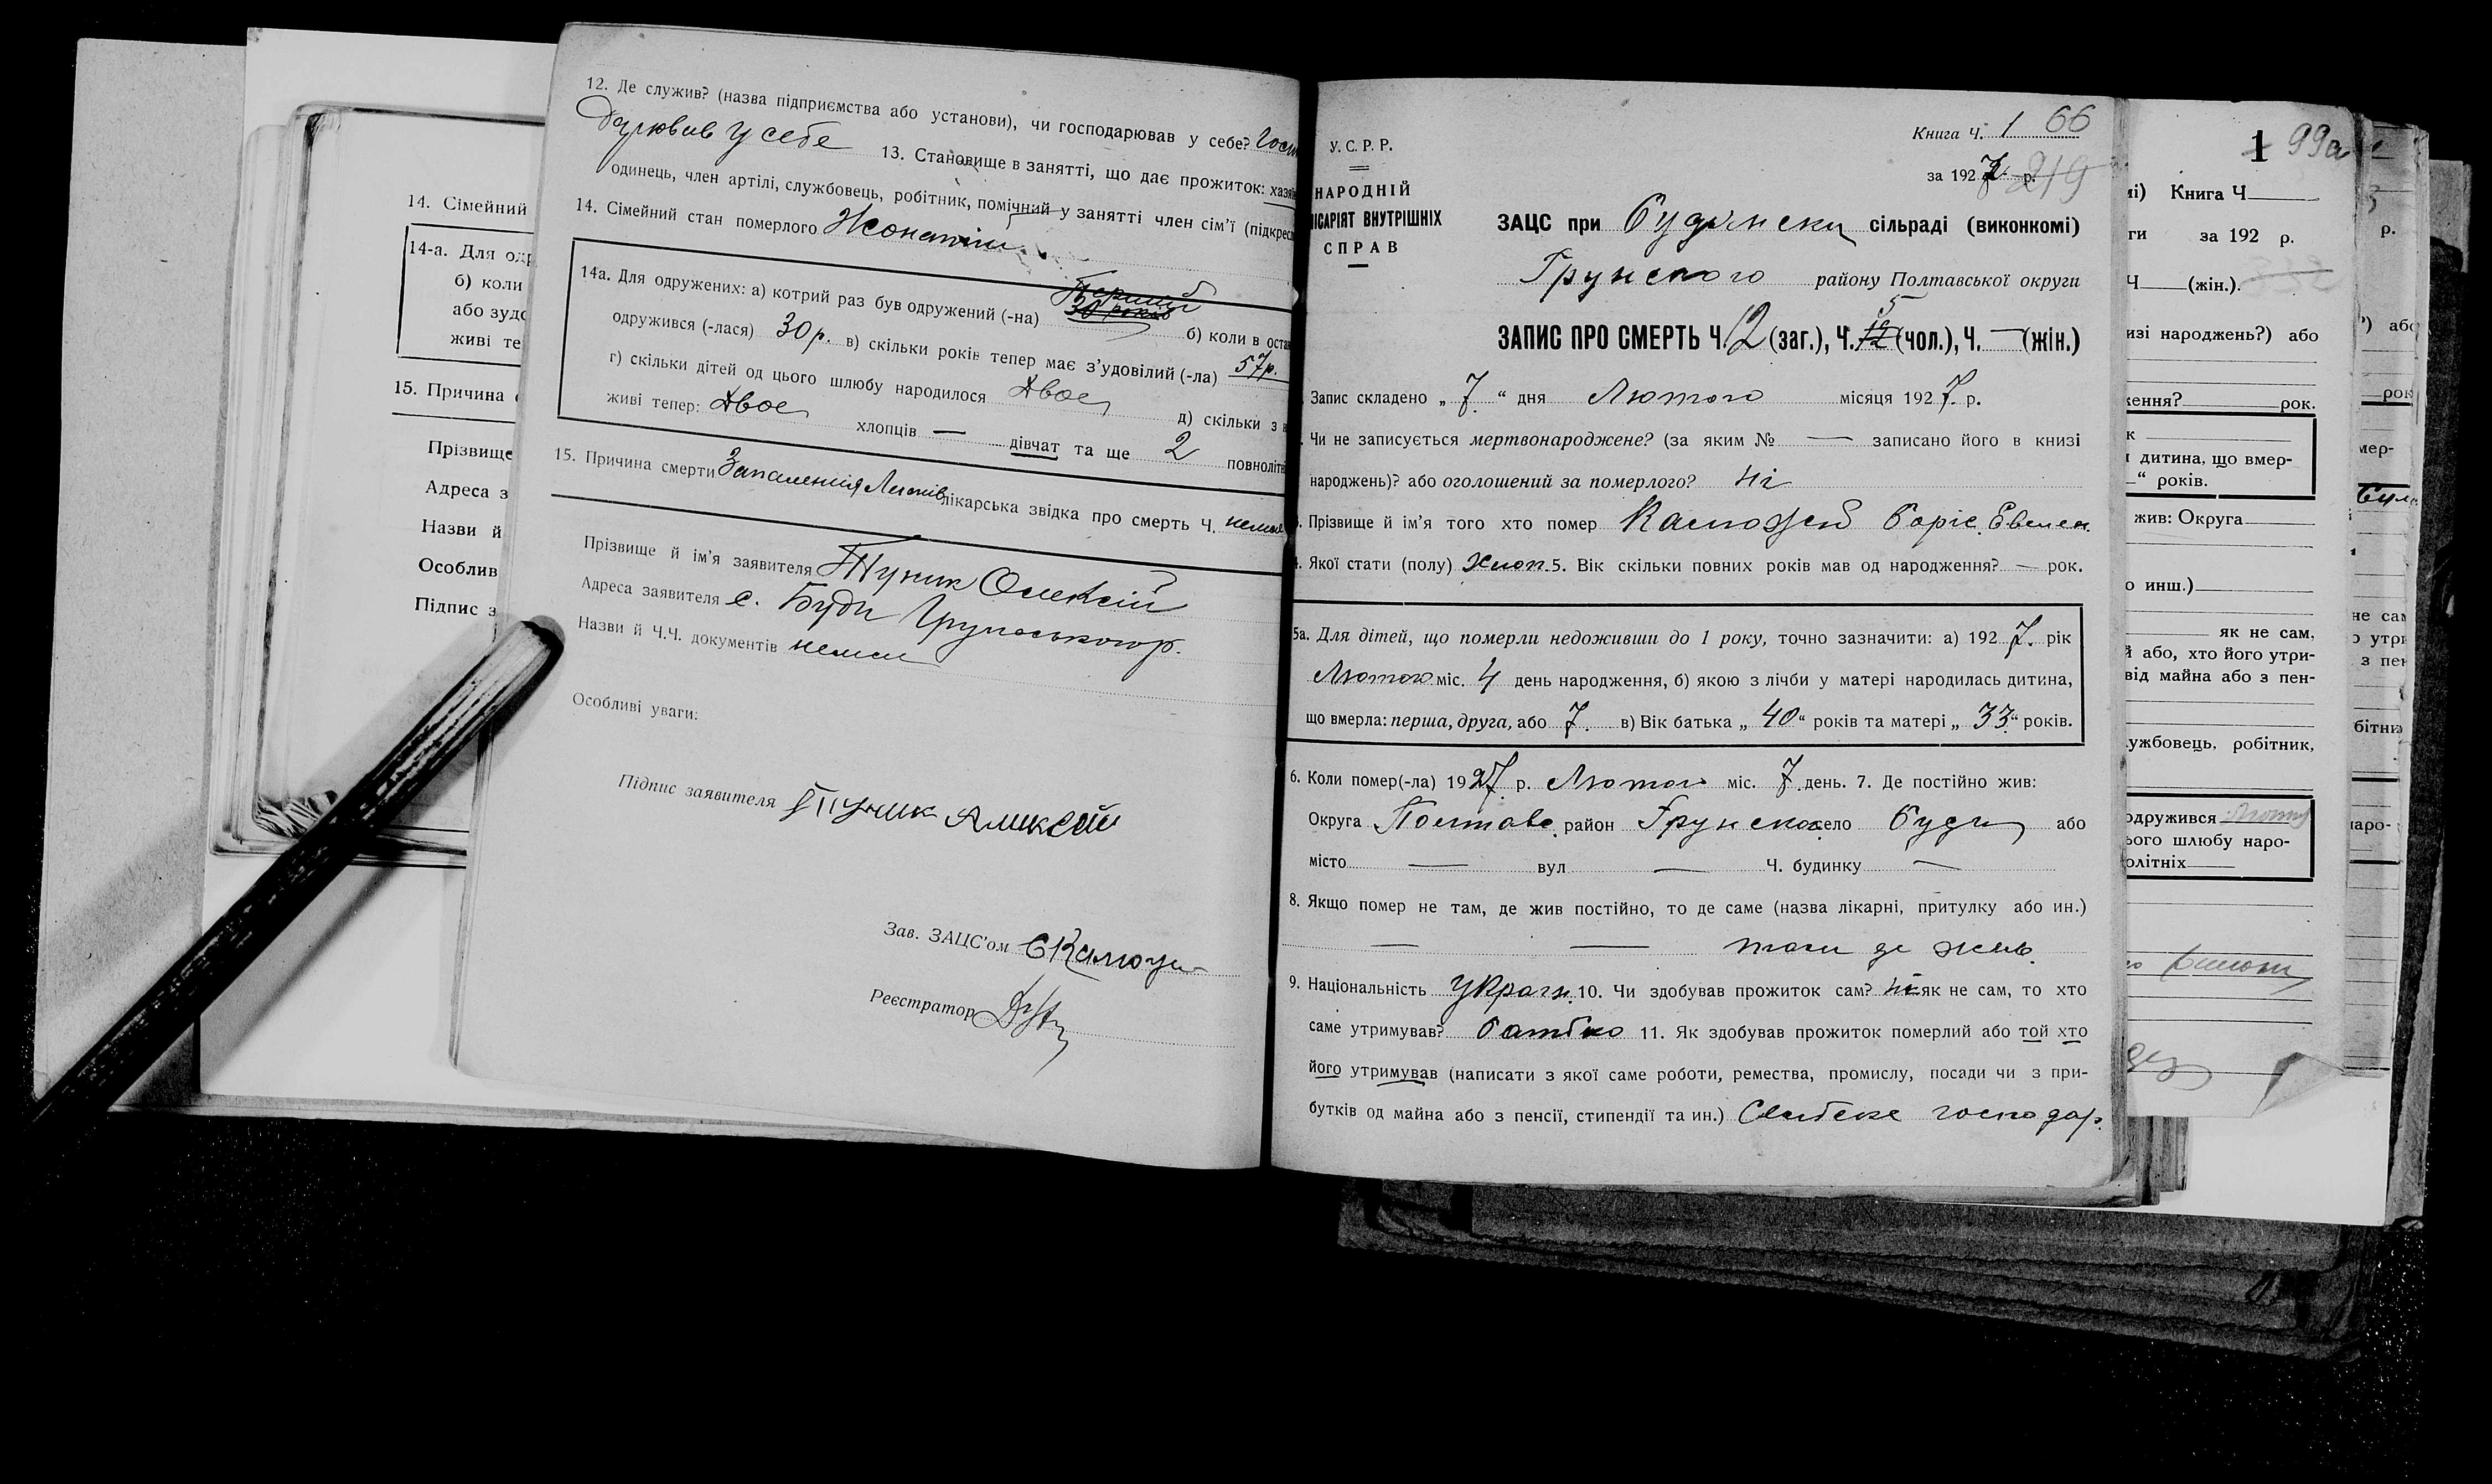 14. Сімейний
14-а. Для од
б) коли
або зудо
живі те
15. Причина
Прізвище
Адреса з
Назви й
Особлив
Підпис з
12. Де служив? (назва підприємства або установи), чи господарював у себе? Госп
дарював у себе 13. Становище в занятті, що дає прожиток: хазяїн
одинець, член артілі, службовець, робітник, помічний у занятті член сім'ї (підкресл
14. Сімейний стан померлого Жонатий
14а. Для одружених: а) котрий раз був одружений (-на) Перший 30 років б) коли в оста
одружився (-лася) 30 р. в) скільки років тепер має з'удовілий (-ла) 57 р.
г) скільки дітей од цього шлюбу народилося Двоє д) скільки з н
живі тепер: Двоє хлопців — дівчат та ще 2 повноліт
15. Причина смерти Запаления Легків лікарська звідка про смерть Ч. немає
Прізвище й ім'я заявителя Тупик Олексій
Адреса заявителя с. Буди Грунського р.
Назви й Ч.Ч. документів немає
Особливі уваги:
Підпис заявителя Тупик Аликсей
Зав. ЗАЦС'ом
Реєстратор
У.С.Р.Р.
НАРОДНІЙ
ІСАРІЯТ ВНУТРІШНІХ
СПРАВ
Книга Ч. 1 66
за 1927 р. 219
ЗАЦС при Будянски сільраді (виконкомі)
Грунского району Полтавської округи
ЗАПИС ПРО СМЕРТЬ Ч. 12 (заг.), Ч. 12 5 (чол.), Ч. — (жін.)
Запис складено „ 7 “ дня Лютого місяця 1927 р.
Чи не записується мертвонароджене? (за яким № — записано його в книзі
народжень)? або оголошений за померлого? ні
Прізвище й ім'я того хто помер Боріс
4. Якої стати (полу) хлоп. 5. Вік скільки повних років мав од народження? — рок.
5а. Для дітей, що померли недоживши до 1 року, точно зазначити: а) 1927 рік
Лютого міс. 4 день народження, б) якою з лічби у матері народилась дитина,
що вмерла: перша, друга, або 7. в) Вік батька „ 40 “ років та матері „ 33 “ років.
6. Коли помер(-ла) 1927 р. Лютого міс. 7 день. 7. Де постійно жив:
Округа Полтавс. район Грунско село Буди або
місто — вул — Ч. будинку —
8. Якщо помер не там, де жив постійно, то де саме (назва лікарні, притулку або ин.)
— — там де жив.
9. Національність Украін. 10. Чи здобував прожиток сам? ні як не сам, то хто
саме утримував? батько 11. Як здобував прожиток померлий або той хто
його утримував (написати з якої саме роботи, ремества, промислу, посади чи з при-
бутків од майна або з пенсії, стипендії та ин.) Сельске господар.
1 99а
мі) Книга Ч
ги за 192 р.
Ч (жін.)
изі народжень?) або
ження? рок.
к
дитина, що вмер-
“ років.
жив: Округа
о инш.)
як не сам,
й або, хто його утри-
від майна або з пен-
ужбовець, робітник,
одружився
ього шлюбу наро-
олітніх
р.
?) або
рок
мер-
не сам
о утри
з пен
бітник
наро-